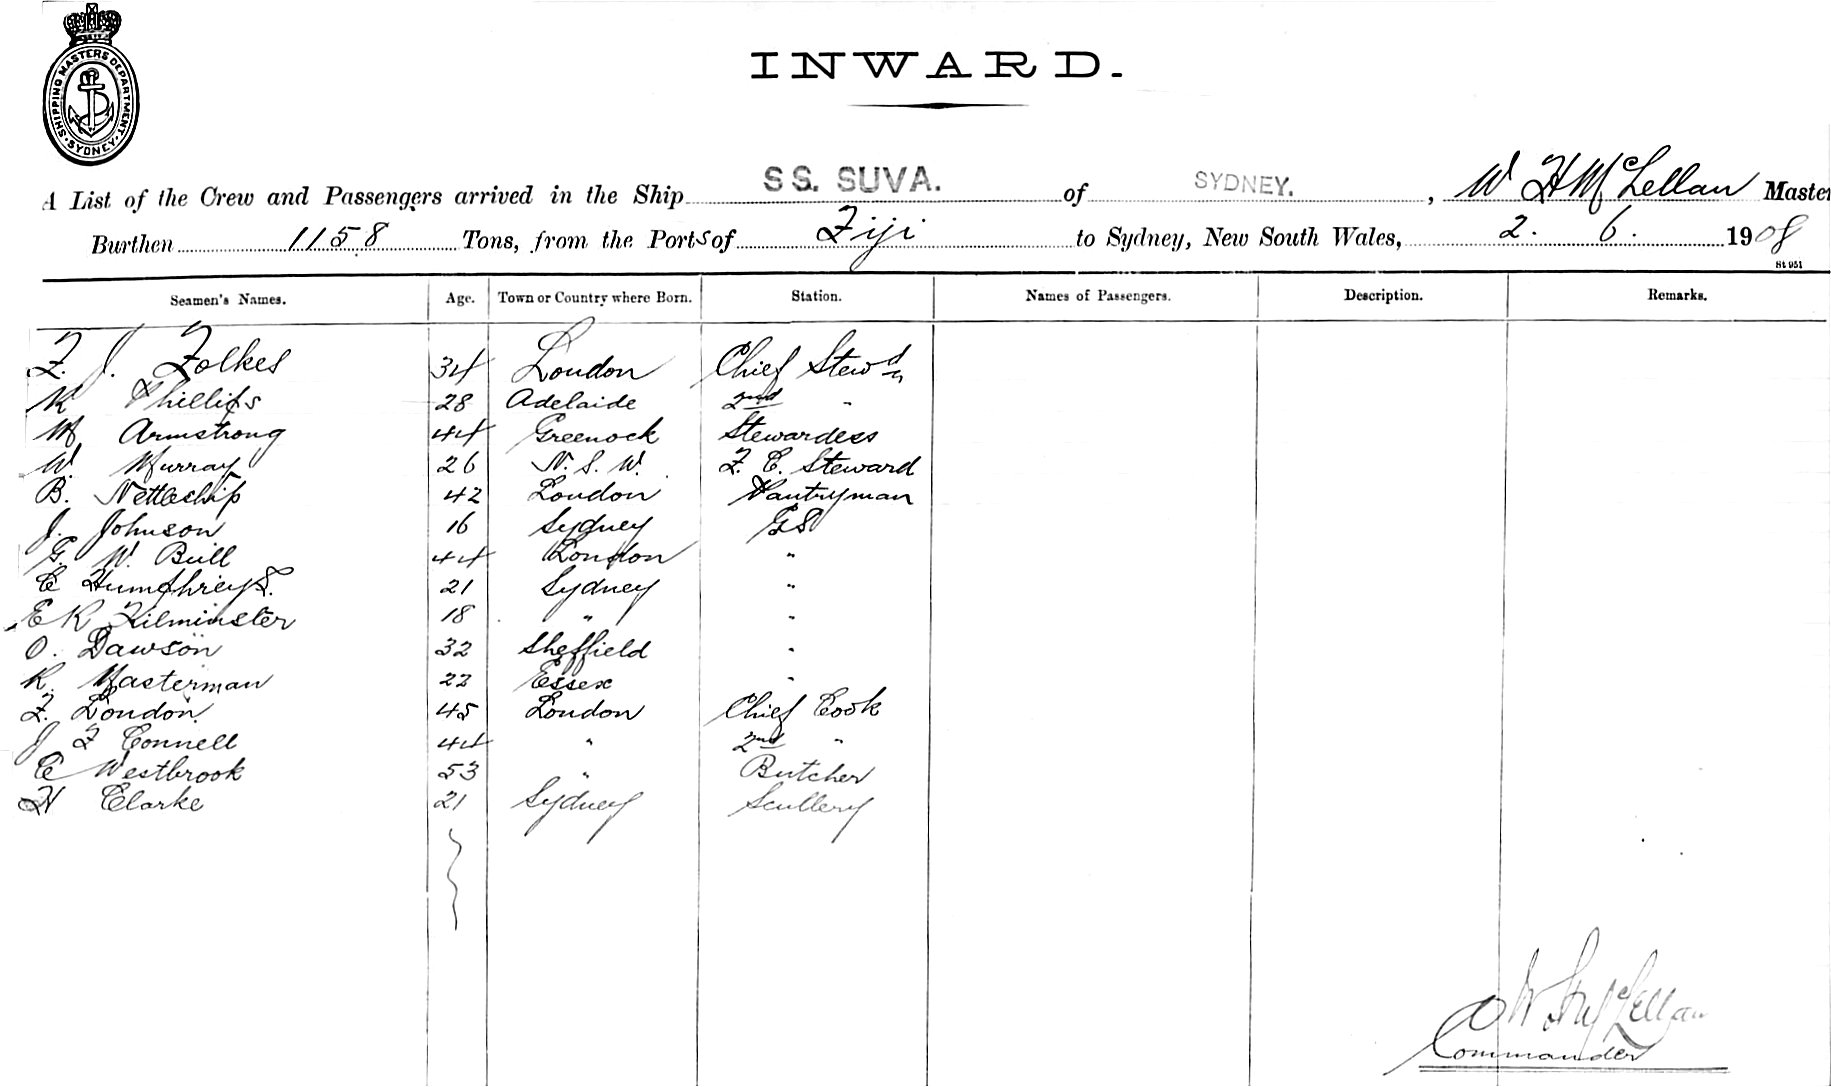 SHIPPING MASTERS DEPARTMENT. SYDNEY
INWARD.
A List of the Crew and Passengers arrived in the Ship SS. SUVA. of SYDNEY. , W H McLellan Master
Burthen 1158 Tons, from the Ports of Fiji to Sydney, New South Wales, 2. 6. 1908
St 951
Seamen's Names. Age. Town or Country where Born. Station. Names of Passengers. Description. Remarks.
F. J. Folkes 34 London Chief Stewd
R Phillips 28 Adelaide 2nd "
M Armstrong 44 Greenock Stewardess
W. Murray 26 N. S. W. F. C. Steward
B. Nettleship 42 London Pantryman
J. Johnson 16 Sydney GS
G. W. Bull 44 London "
E Humphreys. 21 Sydney "
E R Filminster 18 " "
O. Dawson 32 Sheffield "
R. Masterman 22 Essex "
F. London. 45 London Chief Cook
J F Connell 44 " 2nd "
E Westbrook 53 " Butcher
H Clarke 21 Sydney Scullery
W H McLellan
Commander